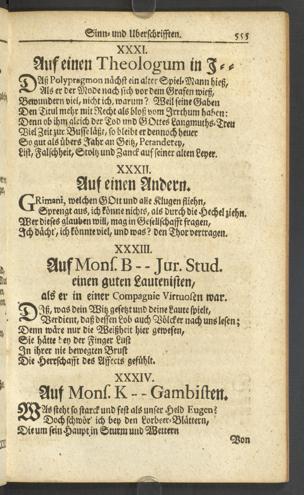 Sinn- und Uberschrifften. 555
XXXI.
Auf einen Theologum in J--
DAß Polypragmon nächst ein alter Spiel-Mann hieß,
Als er der Mode nach sich vor dem Grafen wieß,
Bewundern viel, nicht ich, warum? Weil seine Gaben
Den Titul mehr mit Recht als bloß vom Irrthum haben:
Denn ob ihm gleich der Tod und GOttes Langmuths-Treu
Viel Zeit zur Busse läßt, so bleibt er dennoch heuer
So gut als übers Jahr an Geitz,
List, Falschheit, Stoltz und Zanck auf seiner alten Leyer.
XXXII.
Auf einen Andern.
GRimani, welchen GOtt und alle Klugen fliehn,
Sprengt aus, ich könne nichts, als durch die Hechel ziehn.
Wer dieses glauben will, mag in Gesellschafft fragen,
Ich dächt', ich könnte viel, und was? den Thor vertragen.
XXXIII.
Auf Mons. B -- Jur. Stud.
einen guten Lautenisten,
als er in einer Compagnie Virtuosen war.
DIß, was dein Witz gesetzt und deine Laute spielt,
Verdient, daß dessen Lob auch Völcker nach uns lesen;
Denn wäre nur die Weißheit hier gewesen,
Sie hätte bey der Finger Lust
In ihrer nie bewegten Brust
Die Herrschafft des Affects gefühlt.
XXXIV.
Auf Mons. K -- Gambisten.
WAs steht so starck und fest als unser Held Eugen?
Doch schwör' ich bey den Lorbeer-Blättern,
Die um sein Haupt in Sturm und Wettern
Von